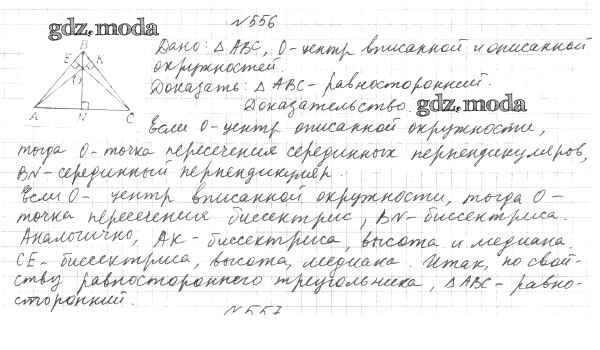 N 556
gdz.moda
Дано: △ABC, O - центр вписанной и описанной
окружностей.
Доказать: △ABC - равносторонний.
Доказательство.
gdz.moda
B
E K
A N C
Если O - центр описанной окружности,
тогда O - точка пересечения серединных перпендикуляров,
BN - серединный перпендикуляр.
Если O - центр вписанной окружности, тогда O -
точка пересечения биссектрис, BN - биссектриса.
Аналогично, AK - биссектриса, высота и медиана.
CE - биссектриса, высота, медиана. Итак, по свой-
ству равностороннего треугольника, △ABC - равно-
сторонний.
N 557